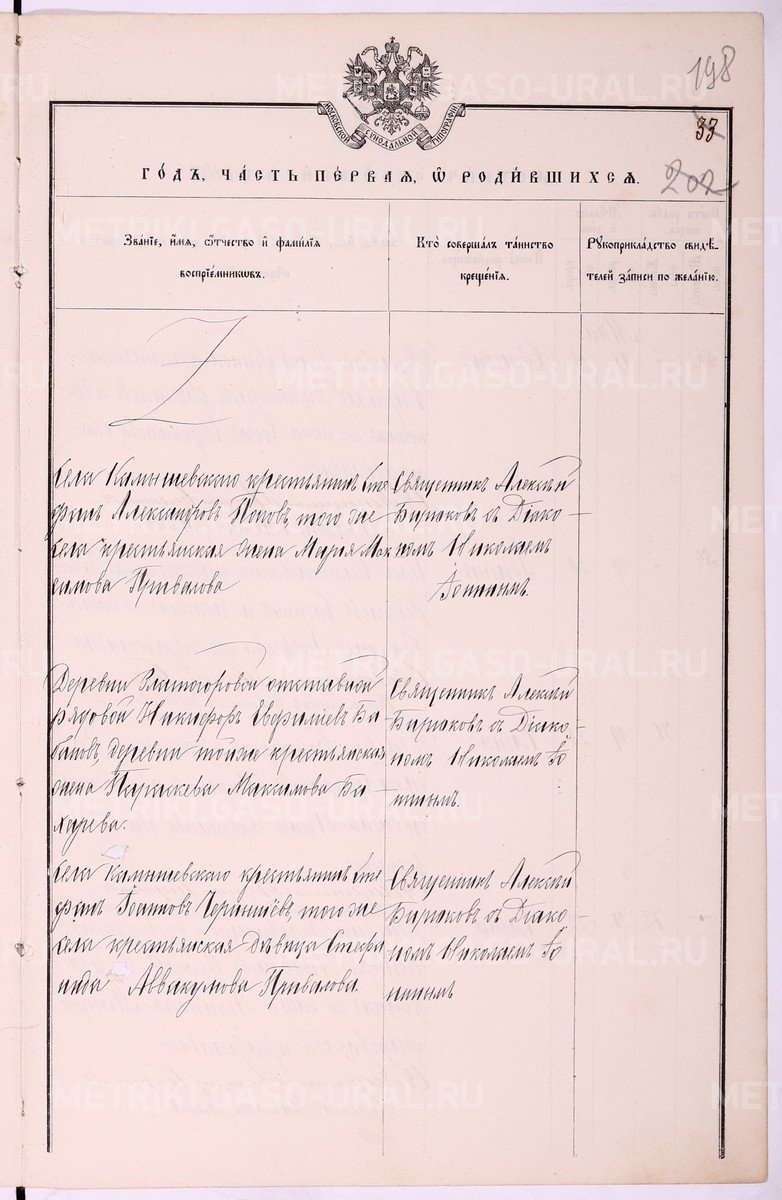 198
МОСКОВСКОЙ СѴНОДАЛЬНОЙ ТИПОГРАФІИ
33
202
ГО́ДЪ, ЧА́СТЬ ПЕ́РВАЯ, Ѽ РОДИ́ВШИХСЯ.
Зва́нїе, и҆́мя, ѻ҆́тчество и҆ фами́лїя
воспрїе́мниковъ.
Кто̀ соверша́лъ та́инство
креще́нїя.
Рꙋкоприкла́дство свидѣ́-
телей за́писи по жела́нїю.
Села Камышевскаго крестьянинъ Сте
фанъ Александровъ Поповъ, того же
села крестьянская жена Марія Мак
симова Привалова
Священникъ Алексѣй
Бирюковъ съ Діако-
номъ Николаемъ
Топинымъ.
Деревни Златогоровой отставной
рядовой Никифоръ Евфиміевъ Ба
бановъ, деревни тойже крестьянская
жена Параскева Максимова Ба-
харева.
Священникъ Алексѣй
Бирюковъ съ Діако-
номъ Николаемъ То
пинымъ.
Села Камышевскаго крестьянинъ Сте
фанъ Іоанновъ того же
села крестьянская дѣвица Стефа
нида Аввакумова Привалова.
Священникъ Алексѣй
Бирюковъ съ Діако-
номъ Николаемъ То
пинымъ
METRIKI.GASO-URAL.RU